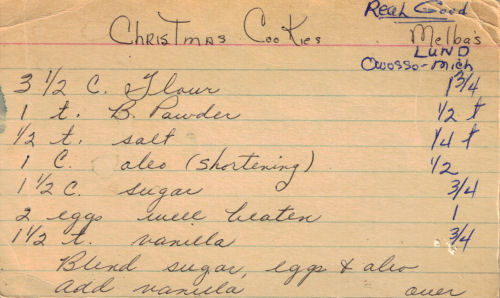 Real Good
Christmas Cookies Melbas
Lund
Owosso-Mich
3 1/2 C. Flour 1 3/4
1 t. B. Powder 1/2 t
1/2 t. salt 1/4 t
1 C. oleo (shortening) 1/2
1 1/2 C. sugar 3/4
2 eggs well beaten 1
1 1/2 t. vanilla 3/4
Blend sugar, eggs & oleo
add vanilla over